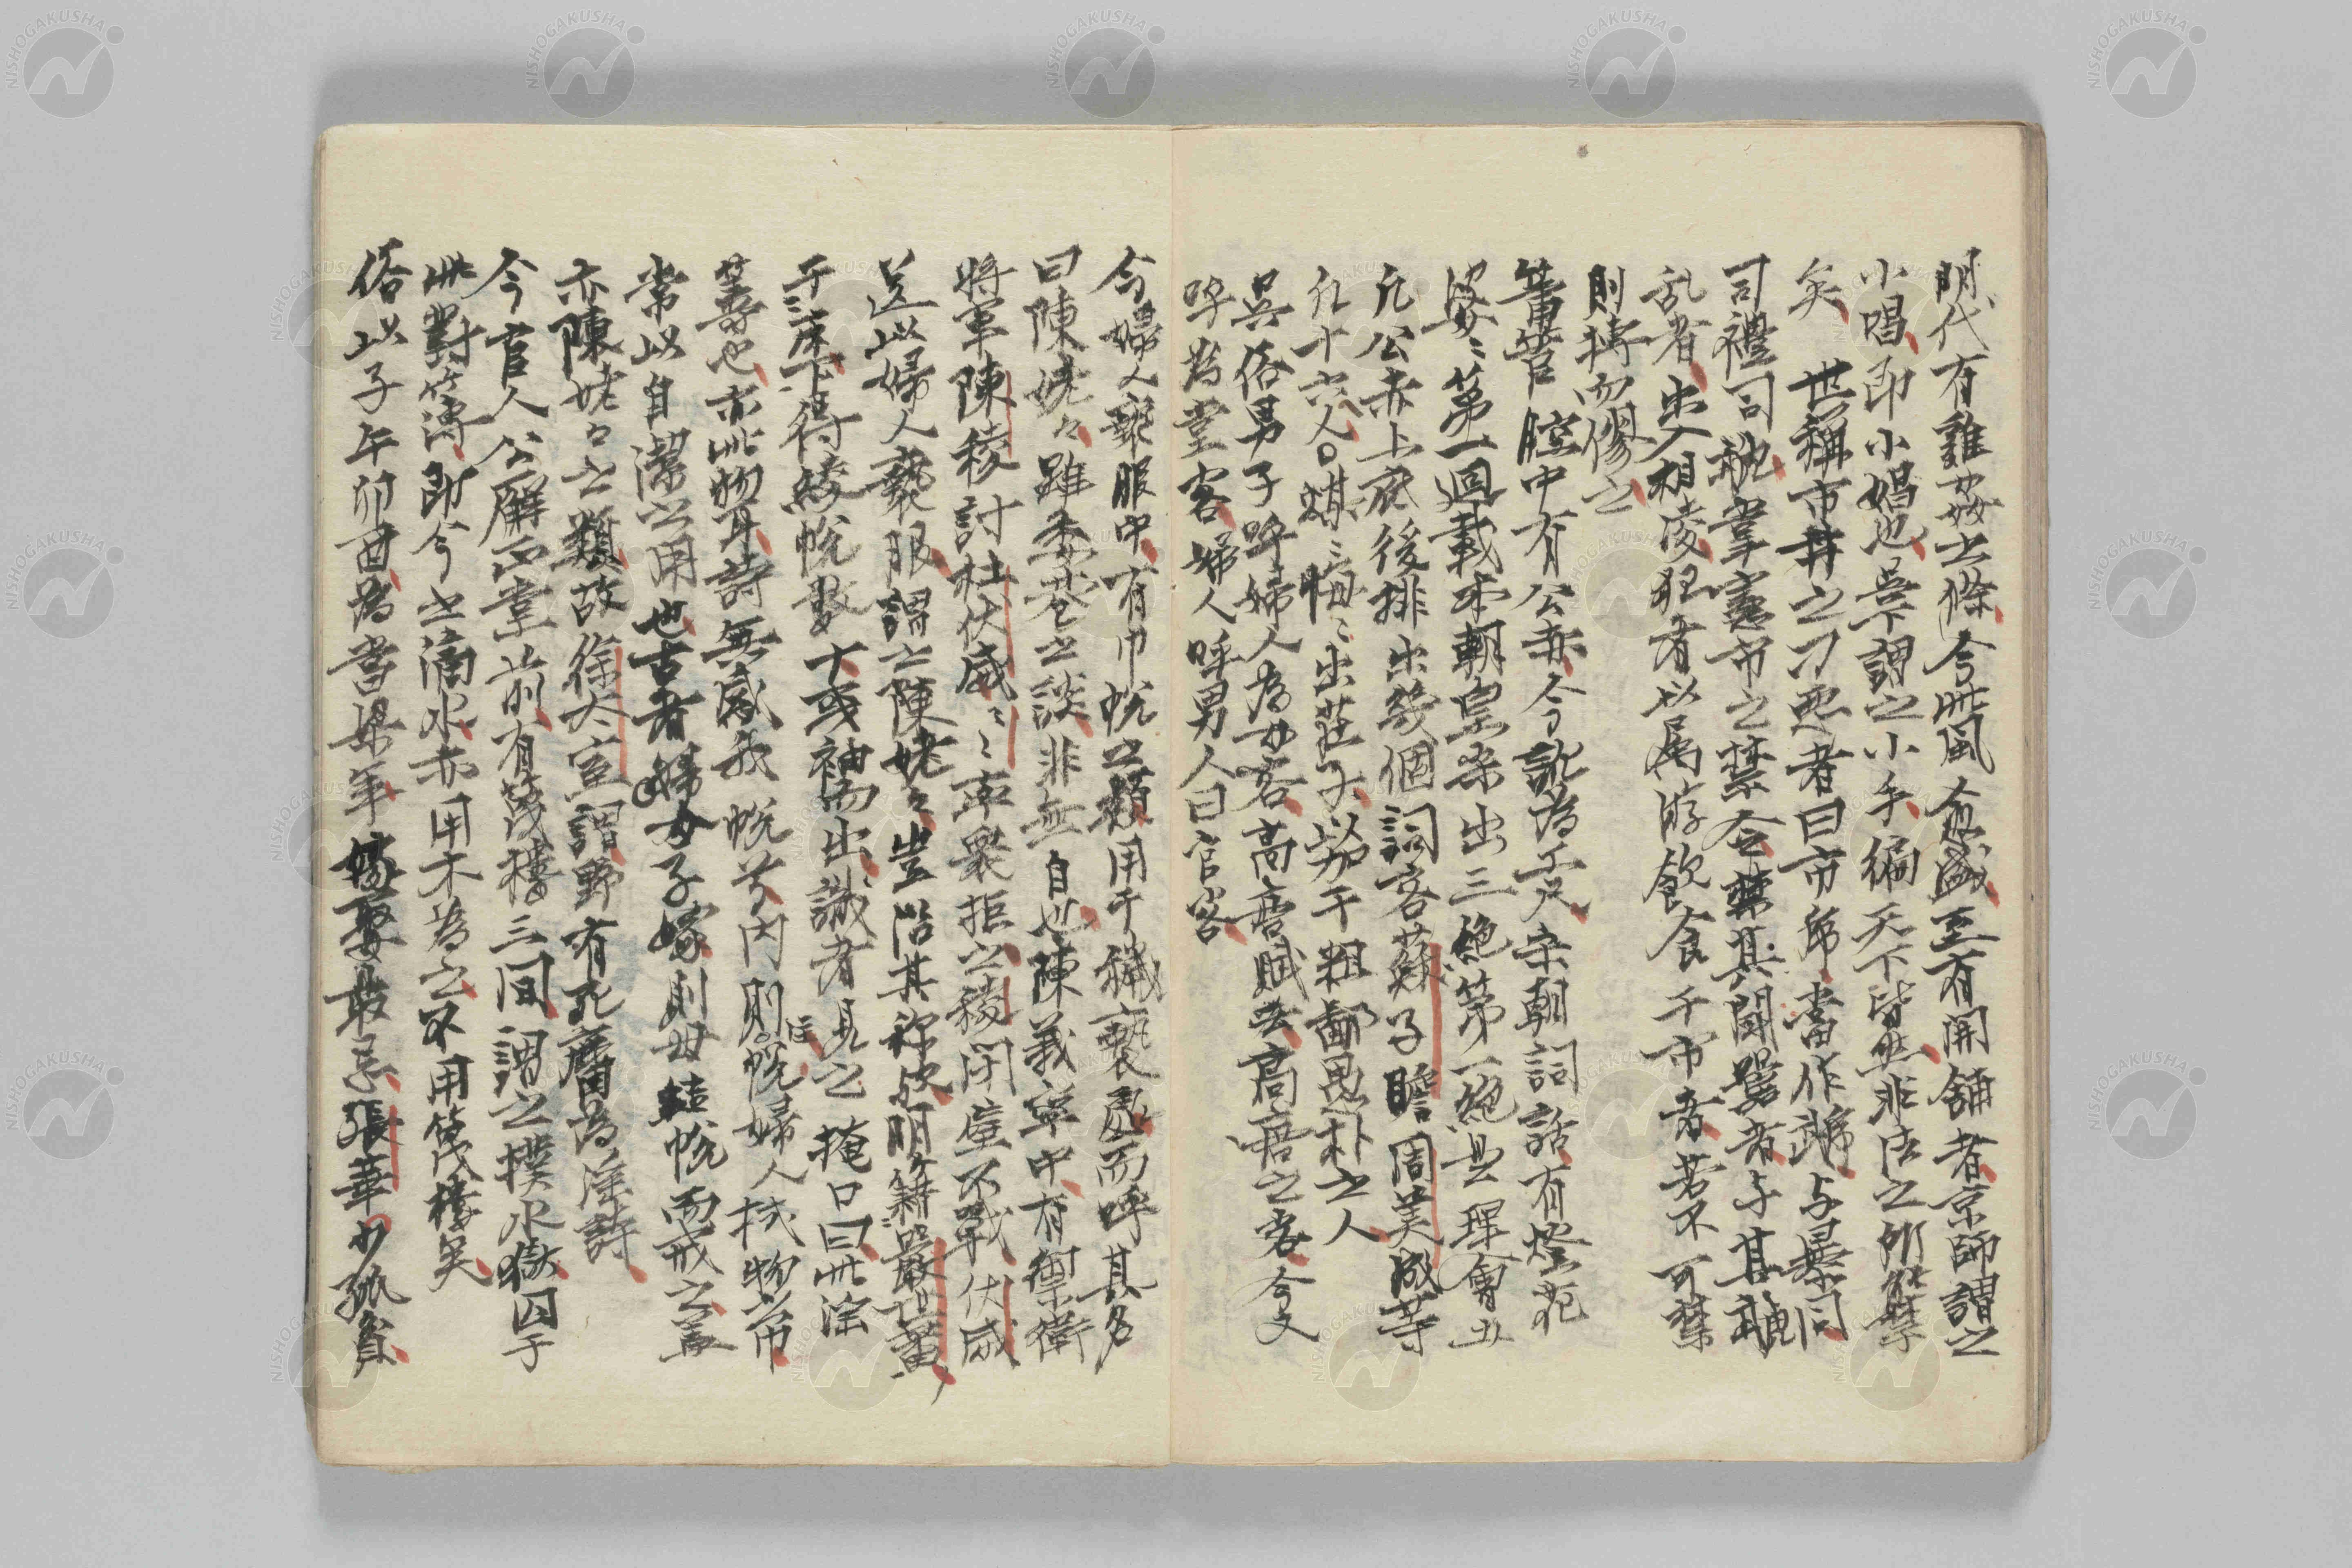 明代有雞姦之條今此風愈盛至有開鋪者京師謂之
小唱即小娼也吳下謂之小手編天下皆然非法之所能禁
矣　世稱市井之刁惡者曰市虎當作
司禮司虣掌憲市之禁令禁其鬪囂者与其虣
乱者出入相凌犯者以属游飲食于市者若不可禁
則搏而戮之
簫管腔中有公赤今訛為工尺宋朝詞話有燈花
婆婆第一回載本朝皇宋出三絕第一絕是理會五
凡公赤上底後排出幾個詞客蘇子瞻周美成等
凡十六人○媒媒晦晦出莊子
吳俗男子呼婦人為女客高唐賦云高唐之客今又
呼為堂客婦人呼男人曰官客
今婦人褻服中有巾帨之類用于穢褻處而呼其名
曰陳姥々雖委巷之談非無自也陳義寧中有禦衛
將軍陳稜討杜伏威々率衆拒之稜閉壁不戰伏威
送以婦人褻服謂之陳姥々豈沿其称欤明籍嚴世蕃
于床下得綾帨數十或袖而出識者見之掩口曰此淫
籌也亦此物耳詩無感我帨兮内則注帨婦人拭物巾
常以自潔之用也古者婦女子嫁則母結帨而戒之蓋
亦陳姥々之類故徐大室謂野有死麕為淫詩
今官人公廨正堂前有筏樓三间謂之撲水獄囚于
此對簿即今之滴水亦用木為之不用筏樓矣
俗以子午卯酉為當梁年嫁娶最忌張華少孤貧